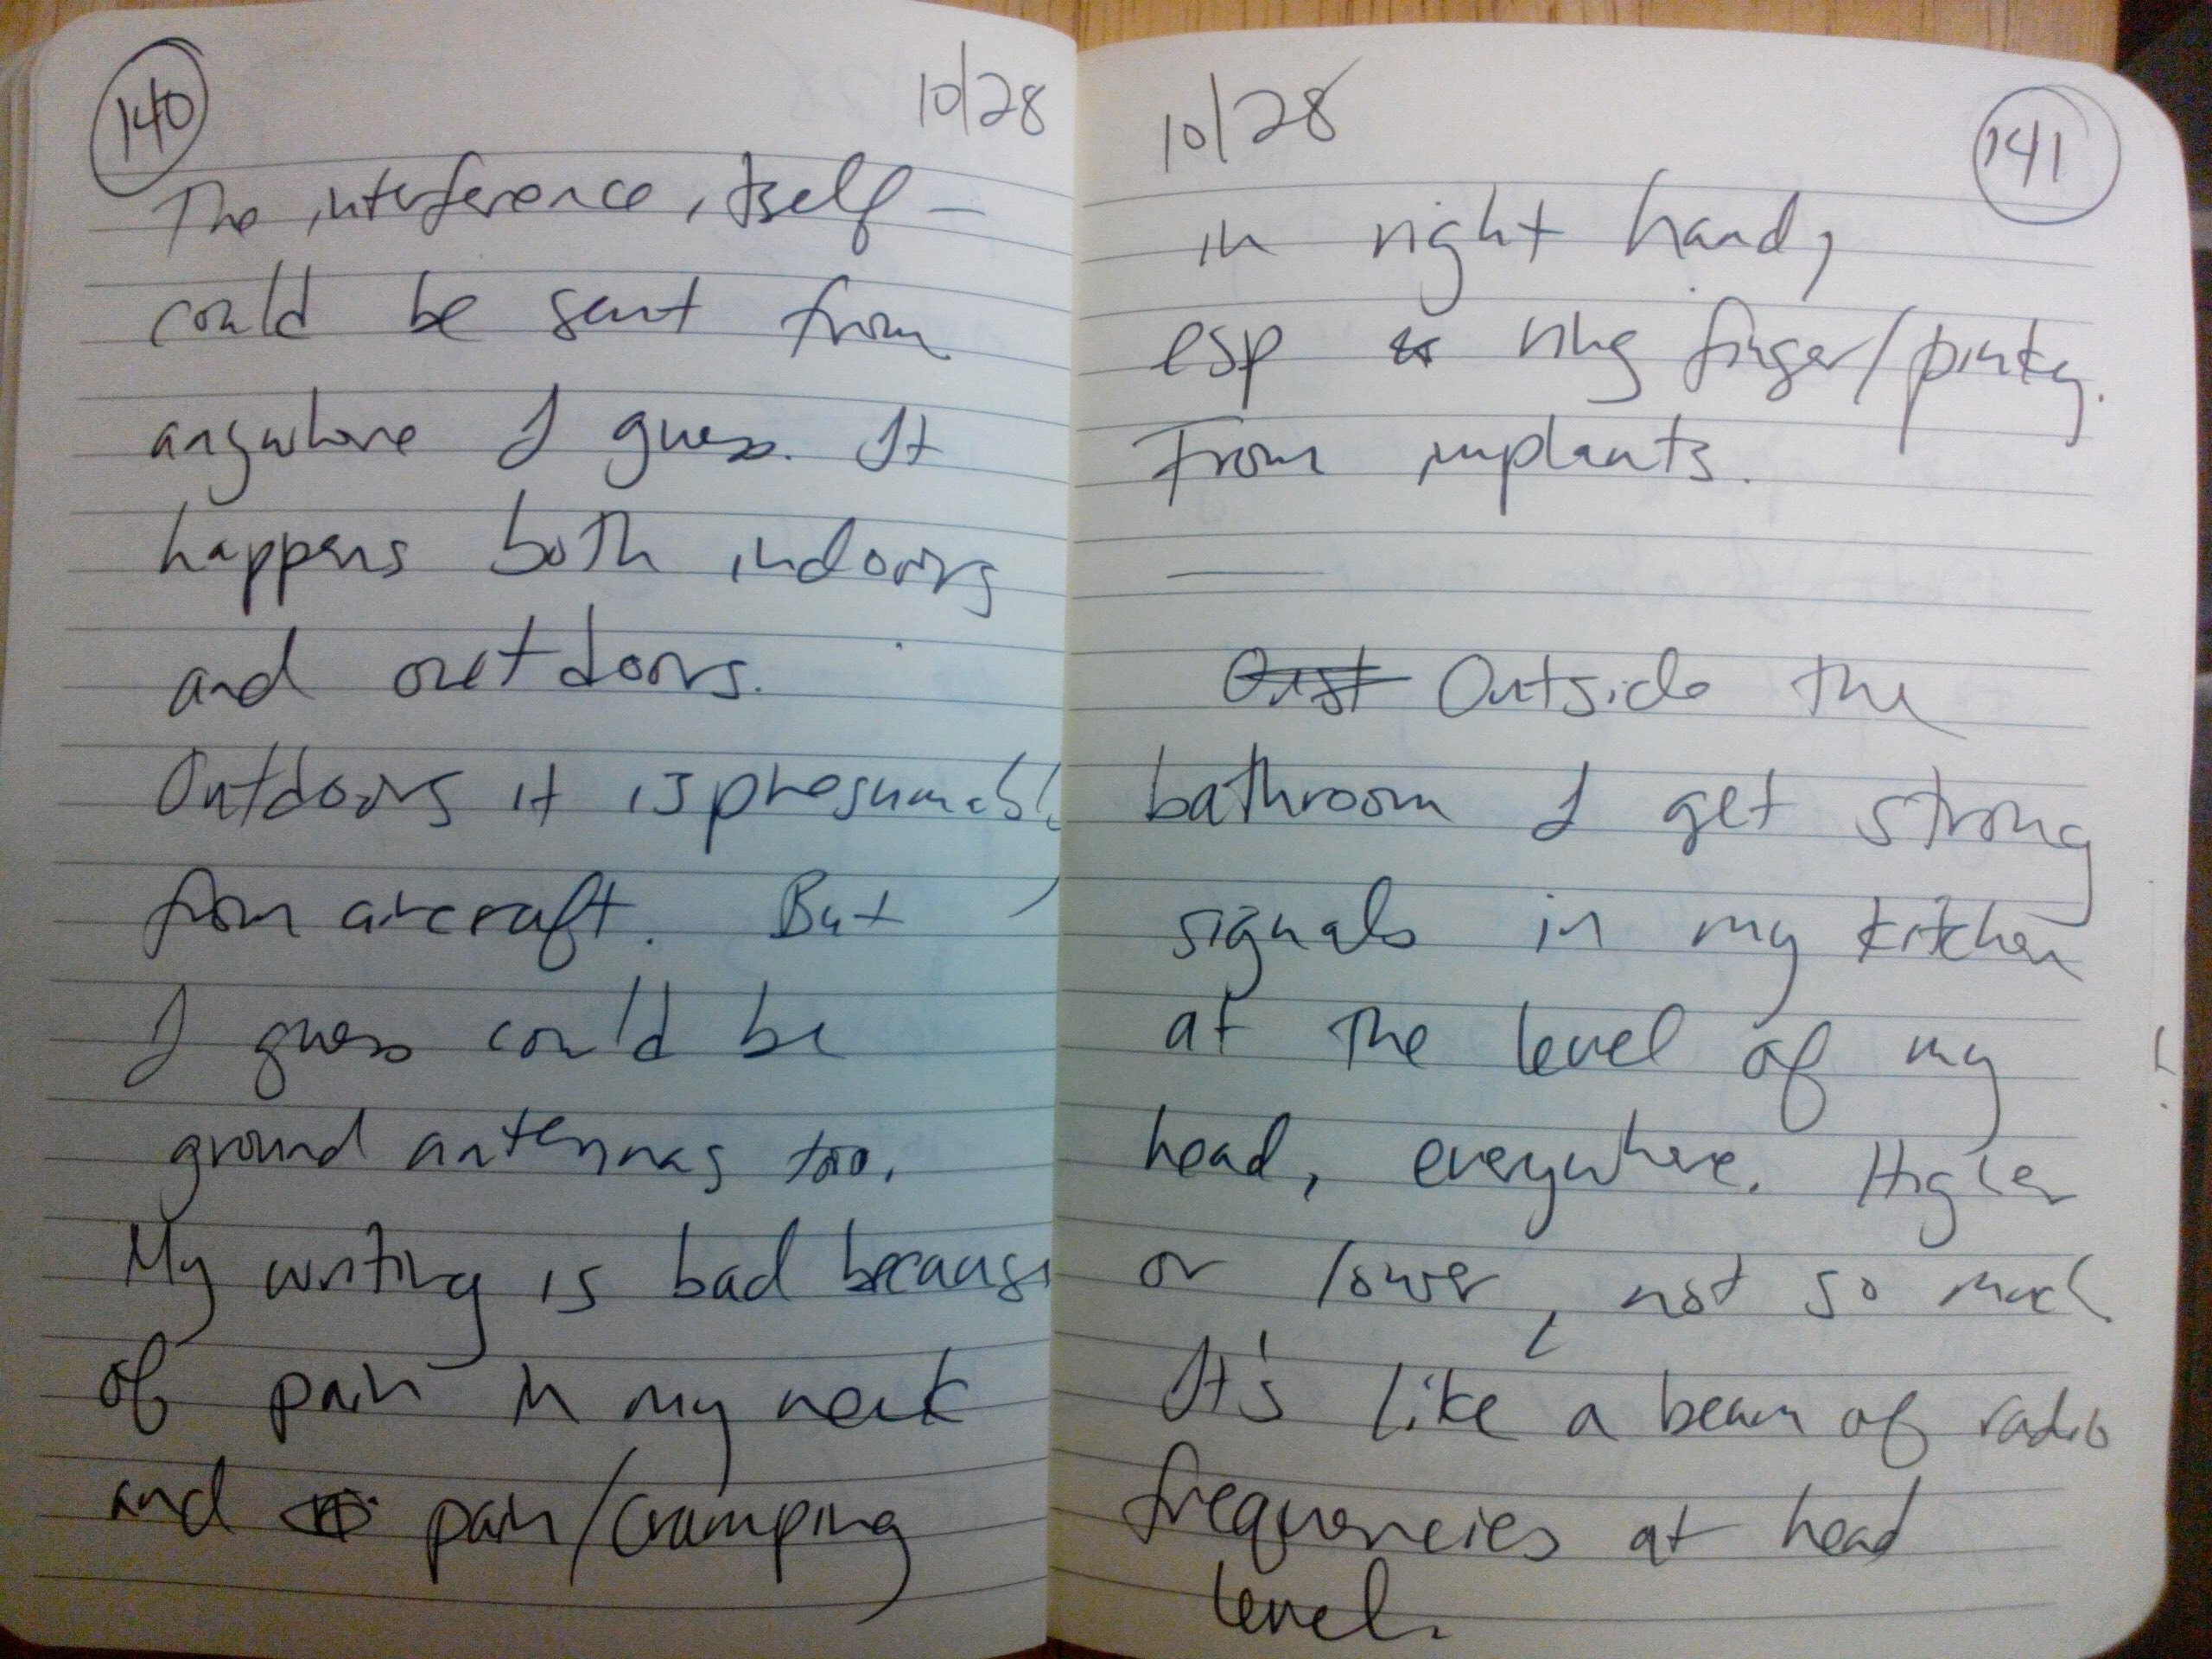 140
10/28
The interference, itself –
could be sent from
anywhere I guess. It
happens both indoors
and outdoors.
Outdoors it is presumably
from aircraft. But
I guess could be
ground antennas too.
My writing is bad because
of pain in my neck
and pain/cramping
10/28
141
in right hand,
esp ring finger/pinky.
From implants.
Oust Outside the
bathroom I get strong
signals in my kitchen
at the level of my
head, everywhere. Higher
or lower, not so much
It's like a beam of radio
frequencies at head
level.